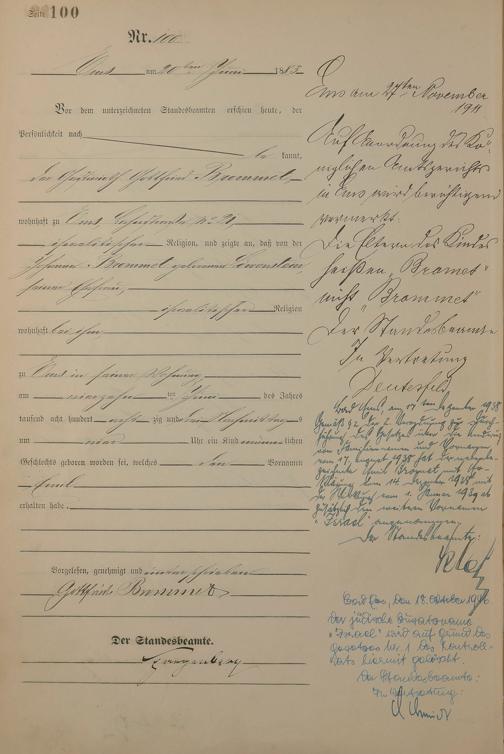 Seite 100
Nr. 100
Ems am 20ten Juni 1883
Vor dem unterzeichneten Standesbeamten erschien heute, der
Persönlichkeit nach
kannt,
Gottfried Brommet
wohnhaft zu Ems
israelitischer Religion, und zeigte an, daß von der
Brommet geborene Löwenstein
seiner Ehefrau,
israelitischer Religion
wohnhaft bei ihm
zu Ems in seiner Wohnung
am neunzehn ten Juni des Jahres
tausend acht hundert acht zig und drei Nachmittags
um Uhr ein Kind männlichen
Geschlechts geboren worden sei, welches den Vornamen
Emil
erhalten habe.
Vorgelesen, genehmigt und unterschrieben
Gottfried Brommet
Der Standesbeamte.
Ems den 27ten November
191
Auf Anordnung des Kö-
niglichen Amtsgerichts
in Ems wird berichtigend
vermerkt.
Die Eltern des Kindes
heißen "Bromet"
nicht "Brommet"
Der Standesbeamte
In Vertretung
Bad Ems, am Dezember 1938
Gemäß § 2 der 2. Verordnung zur Durch-
führung des Gesetzes über die Änderung
von Familiennamen und Vornamen
vom 17. August 1938 hat der
Emil Bromet mit
14. Dezember 1938 mit
der Wirkung vom 1. Januar 1939 ab
zusätzlich den weiteren Vornamen
"Israel" angenommen.
Der Standesbeamte:
Bad Ems, den 18. Oktober 1946
Der jüdische Zusatzname
"Israel" wird auf Grund des
Gesetzes Nr. 1 des Kontroll-
rats hiermit gelöscht.
Der Standesbeamte:
In Vertretung:
Schmidt